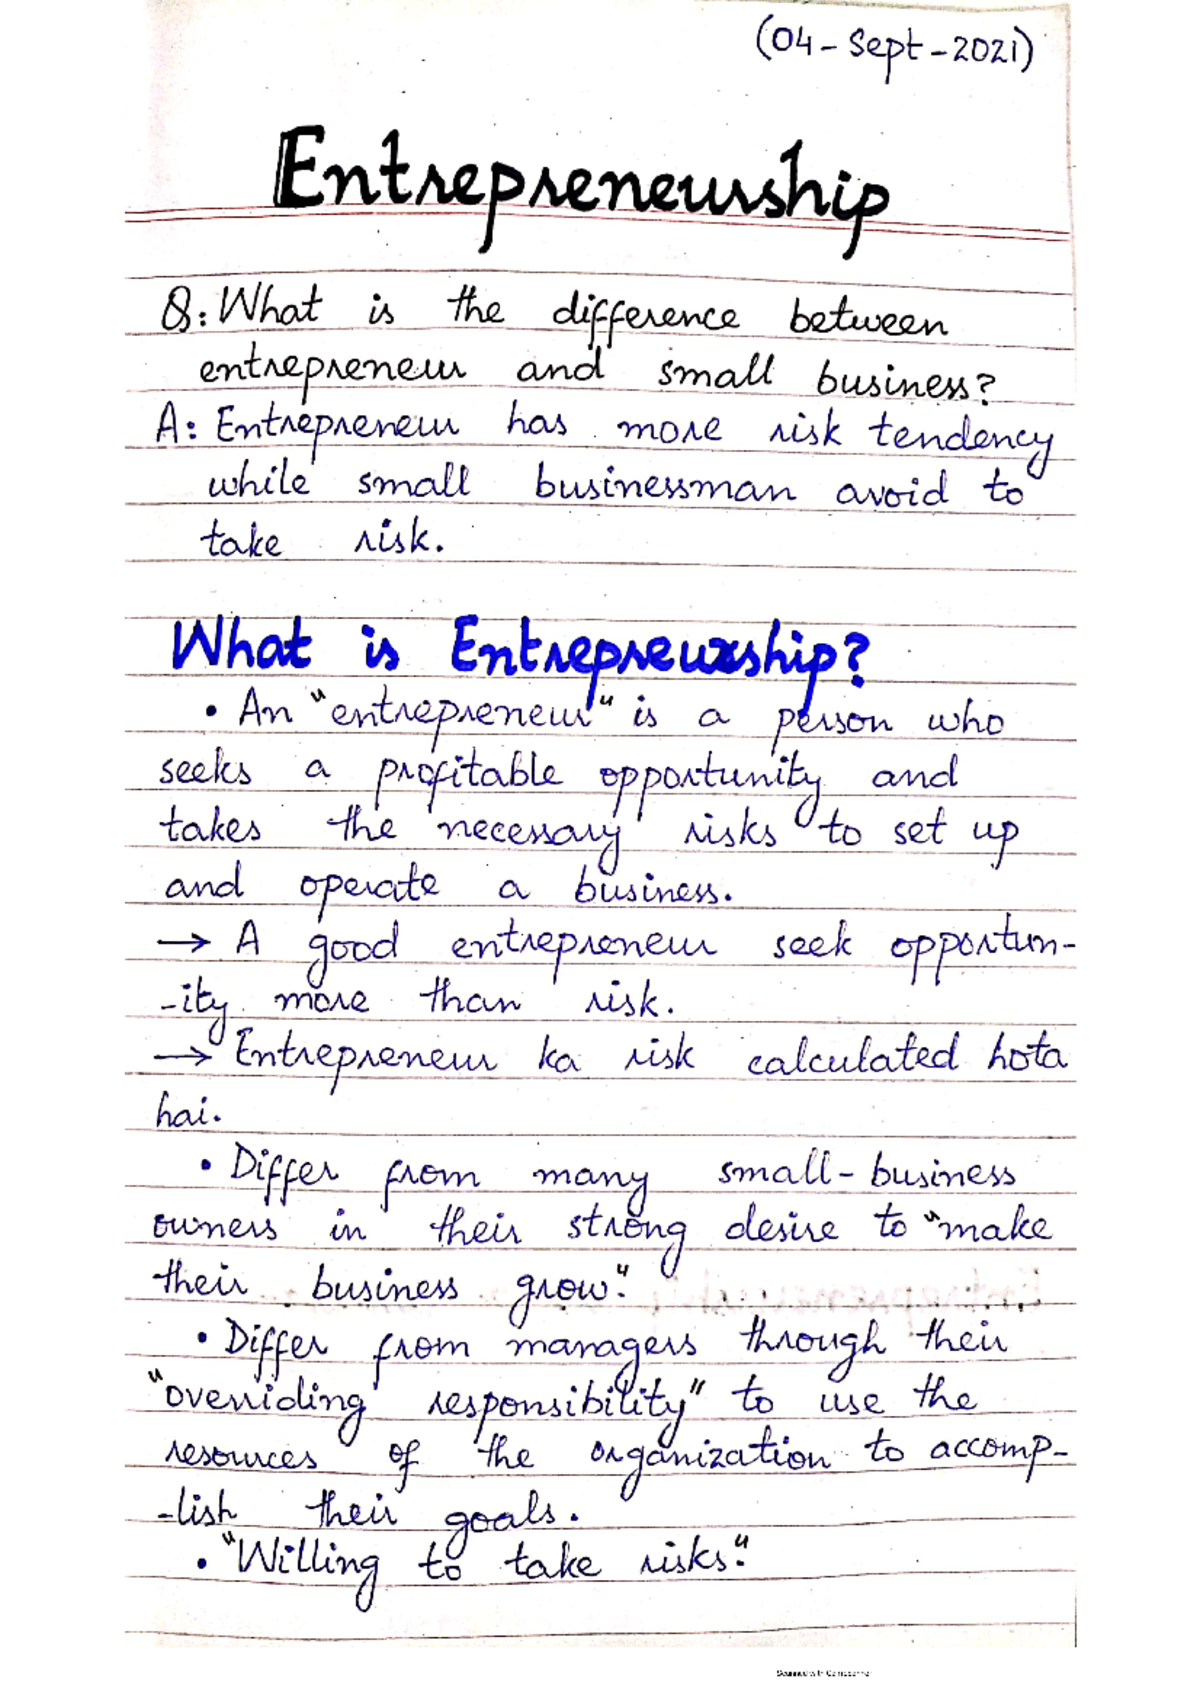 (04-Sept-2021)
Entrepreneurship
Q: What is the difference between
entrepreneur and small business?
A: Entrepreneur has more risk tendency
while small businessman avoid to
take risk.
What is Entrepreurship?
• An "entrepreneur" is a person who
seeks a profitable opportunity and
takes the necessary risks to set up
and operate a business.
→ A good entrepreneur seek opportun-
-ity more than risk.
→ Entrepreneur ka risk calculated hota
hai.
• Differ from many small-business
owners in their strong desire to "make
their business grow".
• Differ from managers through their
"overriding responsibility" to use the
resources of the organization to accomp-
-lish their goals.
• "Willing to take risks".
Scanned with CamScanner